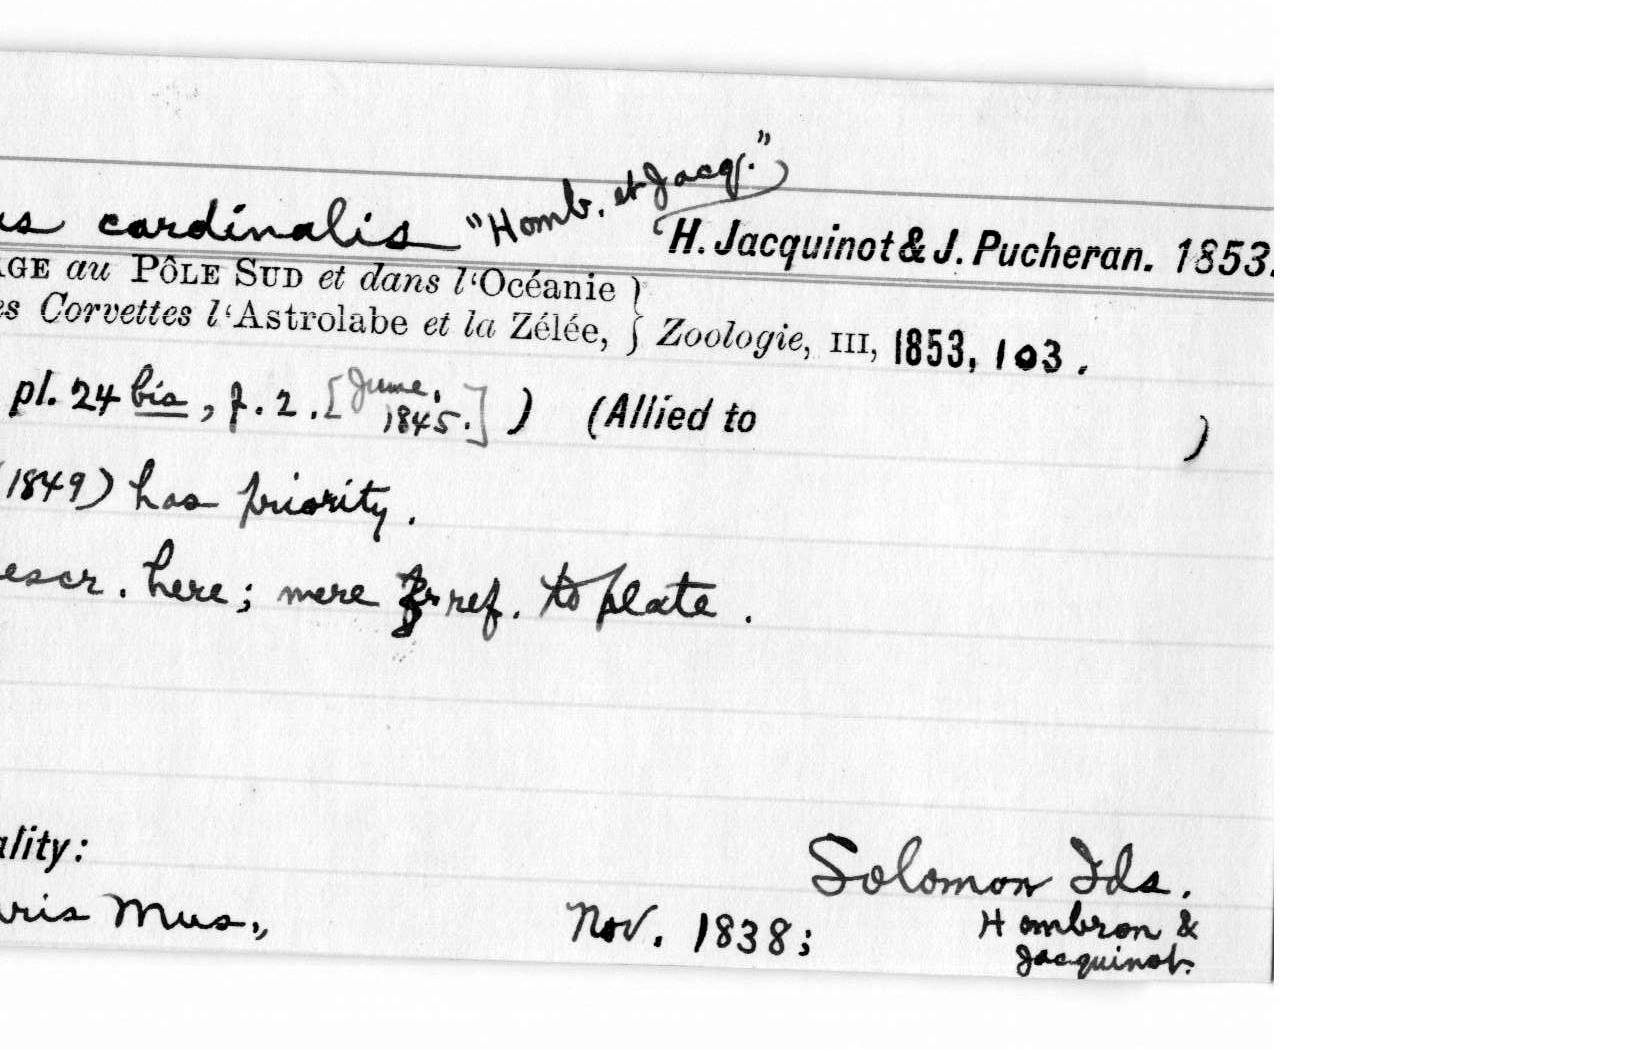 us cardinalis "Homb. et Jacq."
(H. Jacquinot & J. Pucheran. 1853.
AGE au PÔLE SUD et dans l'Océanie }
es Corvettes l'Astrolabe et la Zélée, } Zoologie, III, 1853, 103.
pl. 24 bis, f. 2. [June, 1845.] ) (Allied to )
(1849) has priority.
escr. here; mere ref. to plate.
ality: Solomon Ids.
aris Mus., Nov. 1838; Hombron &
Jacquinot.